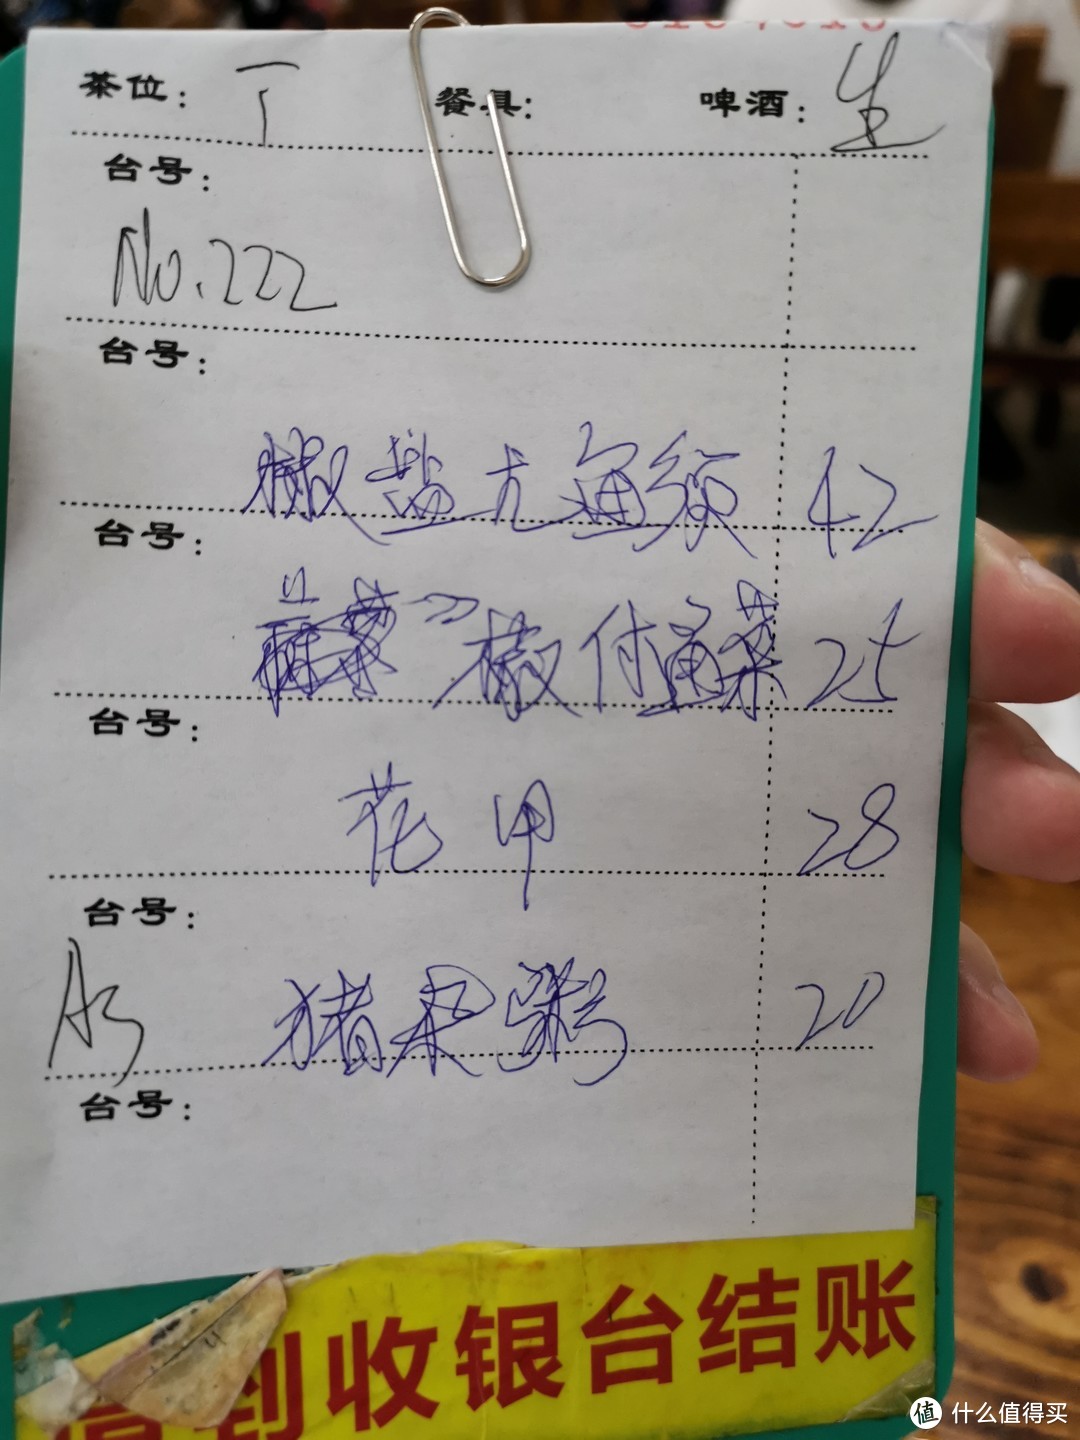 茶位： 丅 餐具： 啤酒： 生
台号：
No.222
台号：
椒盐尤鱼须 42
台号：
椒付鱼菜 25
台号：
花甲 28
台号：
A3 猪杂粥 20
台号：
请到收银台结账
值 什么值得买